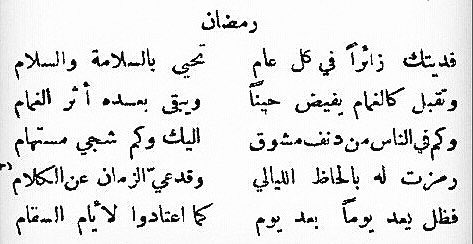 رمضان
فديتك زائراً في كل عام تحيى بالسلامة والسلام
وتقبل كالغمام يفيض حيناً ويبقى بعده أثر الغمام
وكم في الناس من دنف مشوق اليك وكم شجي مستهام
رمزت له بالحاظ الليالي وقد عيّ الزمان عن الكلام
فظل يعد يوماً بعد يوم كما اعتادوا لأيام السقام